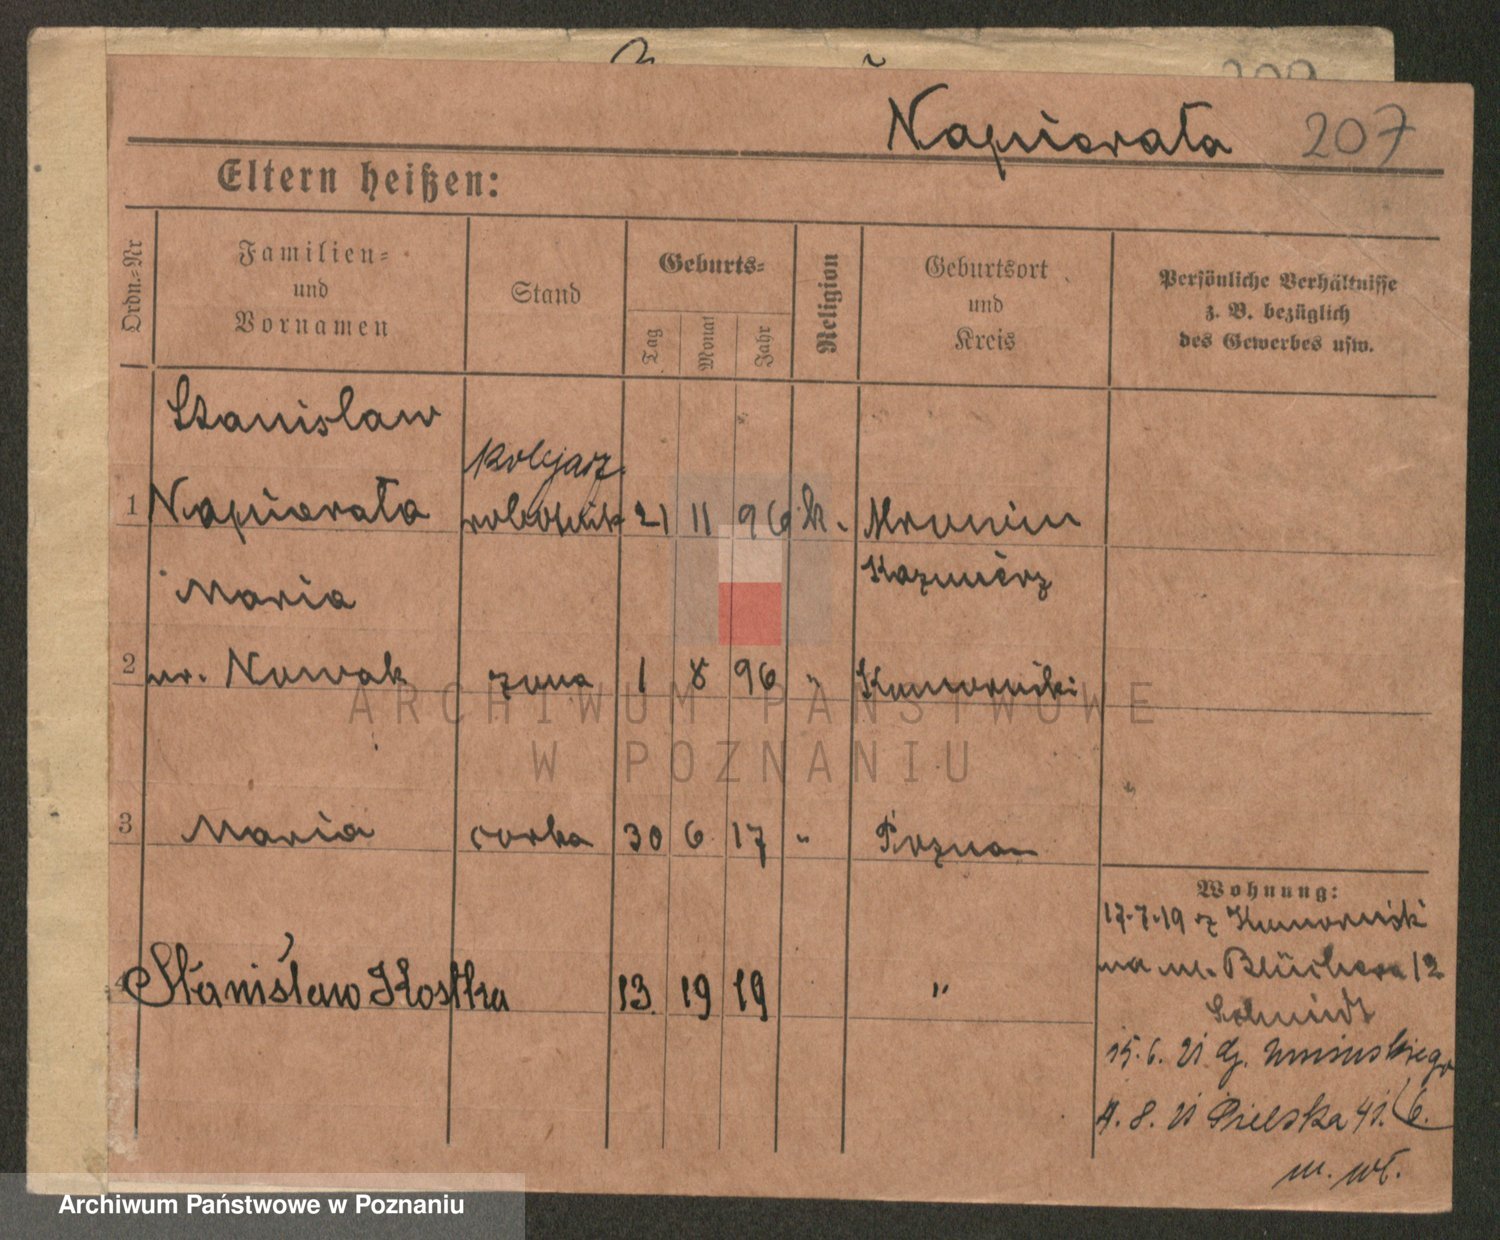 Napierała 207
Eltern heißen:
Ordn.-Nr
Familien-
und
Vornamen
Stand
Geburts-
Tag
Monat
Jahr
Religion
Geburtsort
und
Kreis
Persönliche Verhältnisse
z. B. bezüglich
des Gewerbes usw.
Stanisław
kolejarz
1 Napierała robotnik 21 11 96 k.
Maria
2 ur. Nowak żona 1 8 96 " Komorniki
3 Maria corka 30 6 17 " Poznan
Wohnung:
17.7.19 z Komornik
na ul. Blüchera 12
Schmidt
4 Stanisław Kostka 13. 19 19 "
15.6.21 dj. Umińskiego
4.8.21 Bielska 41. 6.
m. wł.
ARCHIWUM PAŃSTWOWE
W POZNANIU
Archiwum Państwowe w Poznaniu